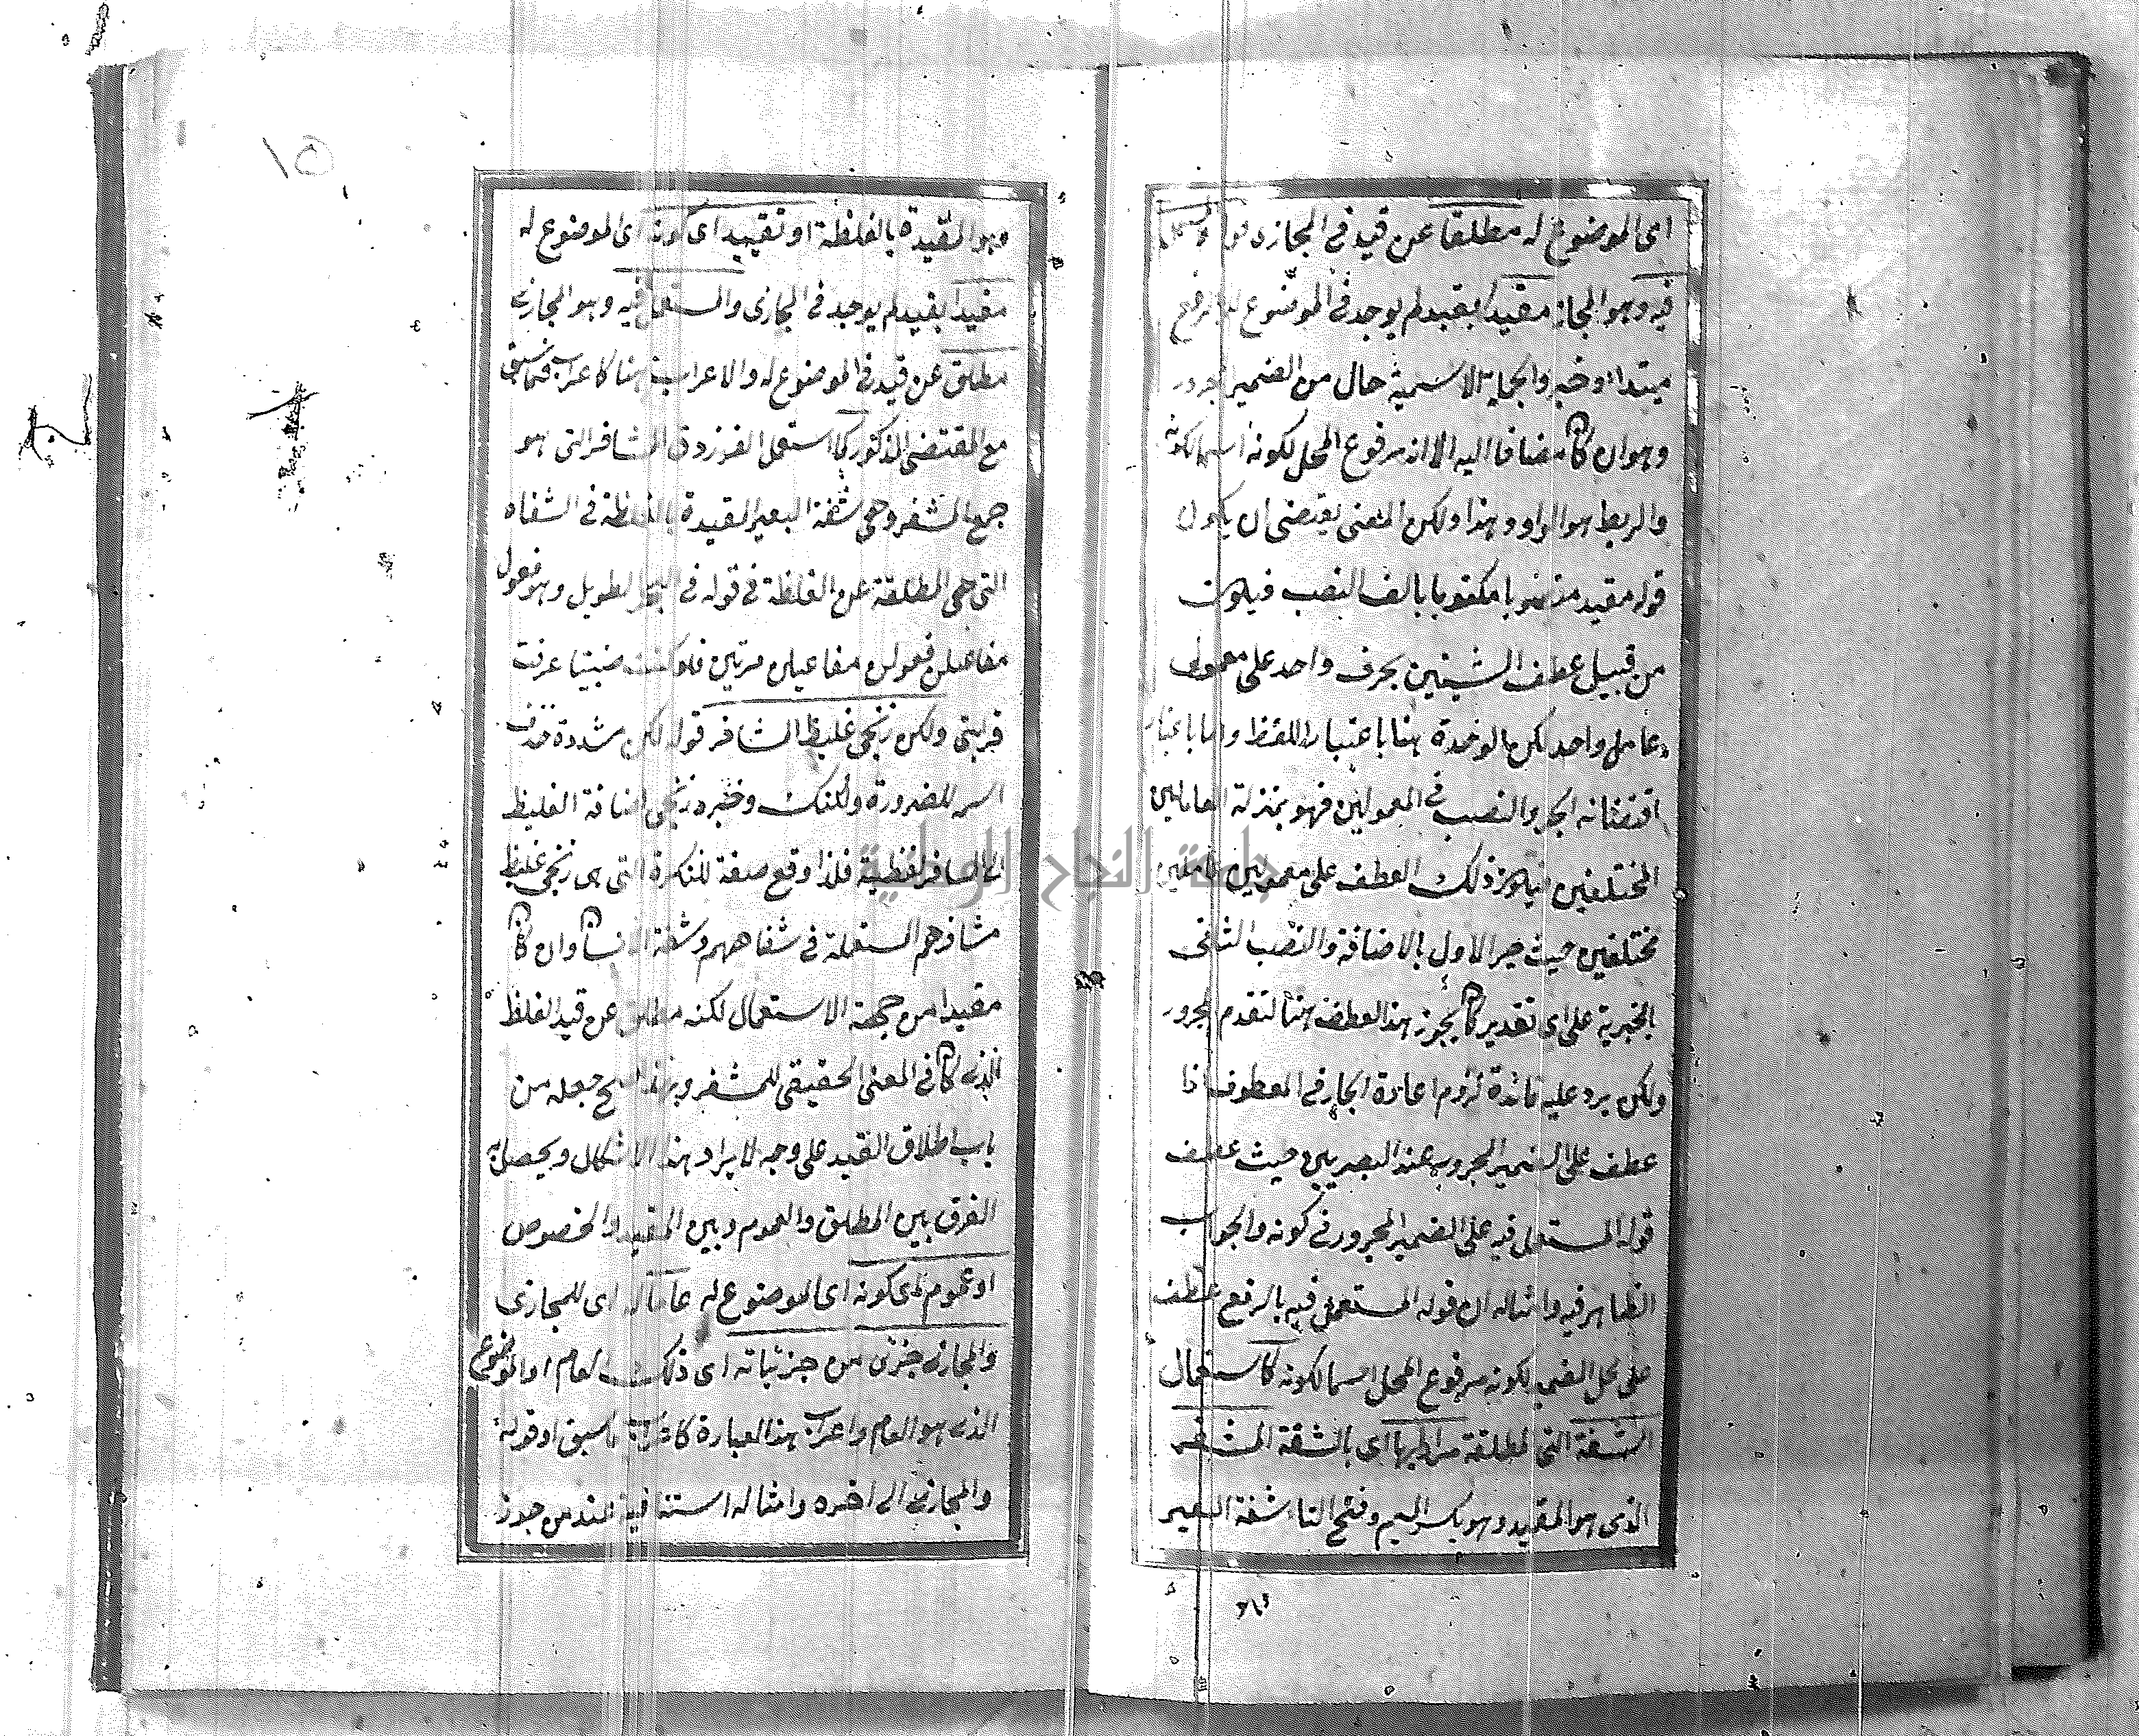 اى الموضوع له مطلقا عن قيد فى المجازى والمستعمل
فيه وهو المجاز مقيدا بقيد لم يوجد فى الموضوع له بالرفع
مبتداء وخبر والجملة الاسمية حال من الضمير المجرور
وهو ان كان مضافا اليه الا انه مرفوع المحل لكونه اسما لكونه
والربط هو الواو وهذا ولكن المعنى يقتضى ان يكون
قوله مقيد منصوبا مكتوبا بالف النصب فيكون
من قبيل عطف الشيئين بحرف واحد على معمولى
عامل واحد لكن الوحدة هنا باعتبار اللفظ واما باعتبار
اقتضائه الجر والنصب فى المعمولين فهو بمنزلة العاملين
المختلفين فيكون ذلك العطف على معمولين عاملين
مختلفين حيث جر الاول بالاضافة والنصب الثانى
بالخبرية على اى تقدير كان يجوز هذا العطف هنا لتقدم المجرور
ولكن يرد عليه فائدة لزوم اعادة الجار فى المعطوف اذا
عطف على الضمير المجرور عند البصريين حيث عطف
قوله المستعمل فيه على الضمير المجرور فى كونه والجواب
الظاهر فيه وامثاله ان قوله المستعمل فيه بالرفع عطف
على محل الضمير لكونه مرفوع المحل اسما لكونه كاستعمال
الشفة التى المطلقة مرادا بها اى بالشفة المشفر
الذى هو المقيد وهو بكسر الميم وفتح الفاء شفة البعير
وهو
١٥
وهو المقيدة بالغلظة او تقييد اى كونه اى الموضوع له
مقيدا بقيد لم يوجد فى المجازى والمستعمل فيه وهو المجازى
مطلق عن قيد فى الموضوع له والاعراب هنا كاعراب فيما سبق
مع المقتضى المذكور كما استعمل الفرزدق المشافر التى هو
جمع المشفر وهى شفة البعير المقيدة بالغلظة فى الشفاه
التى هى المطلقة عن الغلظة فى قوله فى البحر الطويل وهو فعولن
مفاعيلن فعولن مفاعيلن مرتين فلو كنت ضبيا عرفت
قرابتى ولكن زنجى غليظ المشافر قوله لكن مشددة حذف
اسمه للضرورة ولكنك وخبره زنجى اضافة الغليظ
الى المشافر لفظية فلذا وقع صفة للنكرة التى هى زنجى غليظ
مشافرهم المستعملة فى شفاههم وشفة الانسان وان كان
مقيدا من جهة الاستعمال لكنه مطلق عن قيد الغلظ
الذى كان فى المعنى الحقيقى للمشفر وبهذا صح جعله من
باب اطلاق المقيد على وجه لا يراد هذا الاشكال ويحصل به
الفرق بين المطلق والعموم وبين المقيد والخصوص
او عموم اى كونه اى الموضوع له عاما له اى للمجازى
والمجازى جزئى من جزئياته اى ذلك العام او الموضوع
الذى هو العام واعراب هذا العبارة كاعراب ما سبق او قوله
والمجازى الى اخره وامثاله استئنافية عند من جوز
جامعة النجاح الوطنية